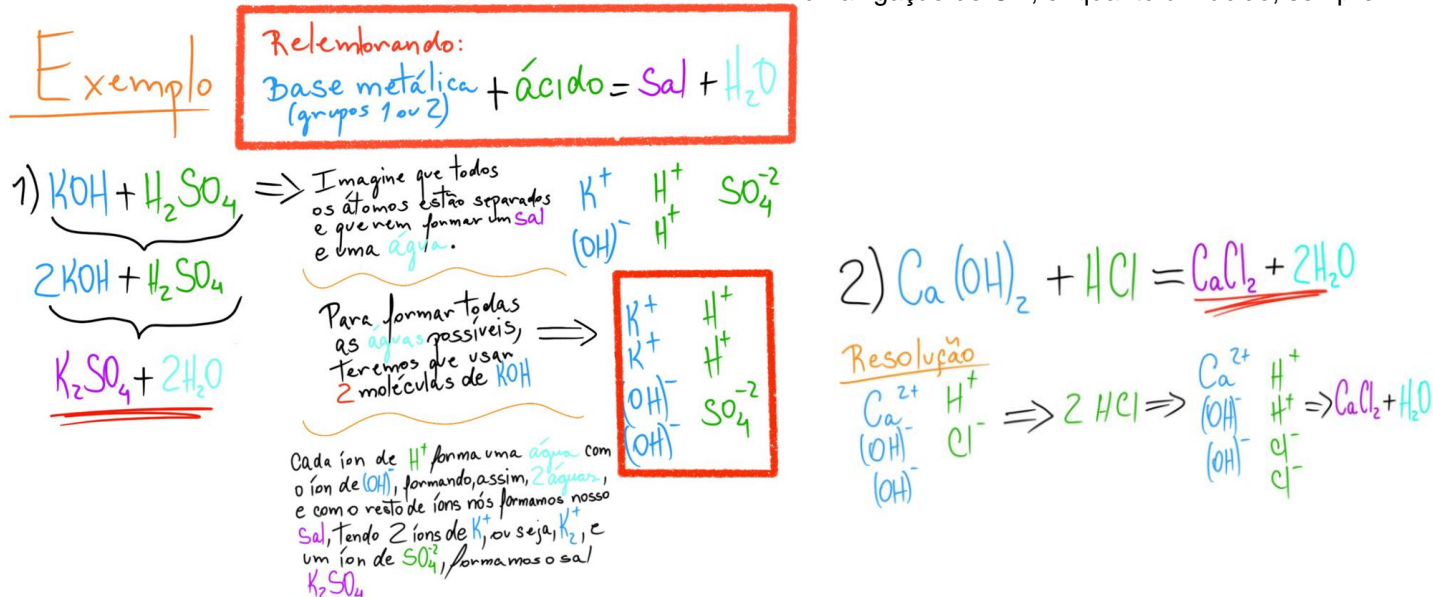 Exemplo
Relembrando:
Base metálica + ácido = Sal + H₂O
(grupos 1 ou 2)
1) KOH + H₂SO₄ ⇒
2KOH + H₂SO₄
K₂SO₄ + 2H₂O
Imagine que todos
os átomos estão separados
e querem formar um sal
e uma água.
K⁺ H⁺ SO₄⁻²
(OH)⁻ H⁺
Para formar todas
as águas possíveis,
teremos que usar
2 moléculas de KOH
⇒
K⁺ H⁺
K⁺ H⁺
(OH)⁻ SO₄⁻²
(OH)⁻
Cada íon de H⁺ forma uma água com
o íon de (OH)⁻, formando, assim, 2 águas,
e com o resto de íons nós formamos nosso
Sal, Tendo 2 íons de K⁺, ou seja, K₂⁺, e
um íon de SO₄⁻², formamos o sal
K₂SO₄
2) Ca(OH)₂ + HCl = CaCl₂ + 2H₂O
Resolução
Ca²⁺ H⁺
(OH)⁻ Cl⁻
(OH)⁻
⇒ 2 HCl ⇒
Ca²⁺ H⁺
(OH)⁻ H⁺
(OH)⁻ Cl⁻
Cl⁻
⇒ CaCl₂ + H₂O